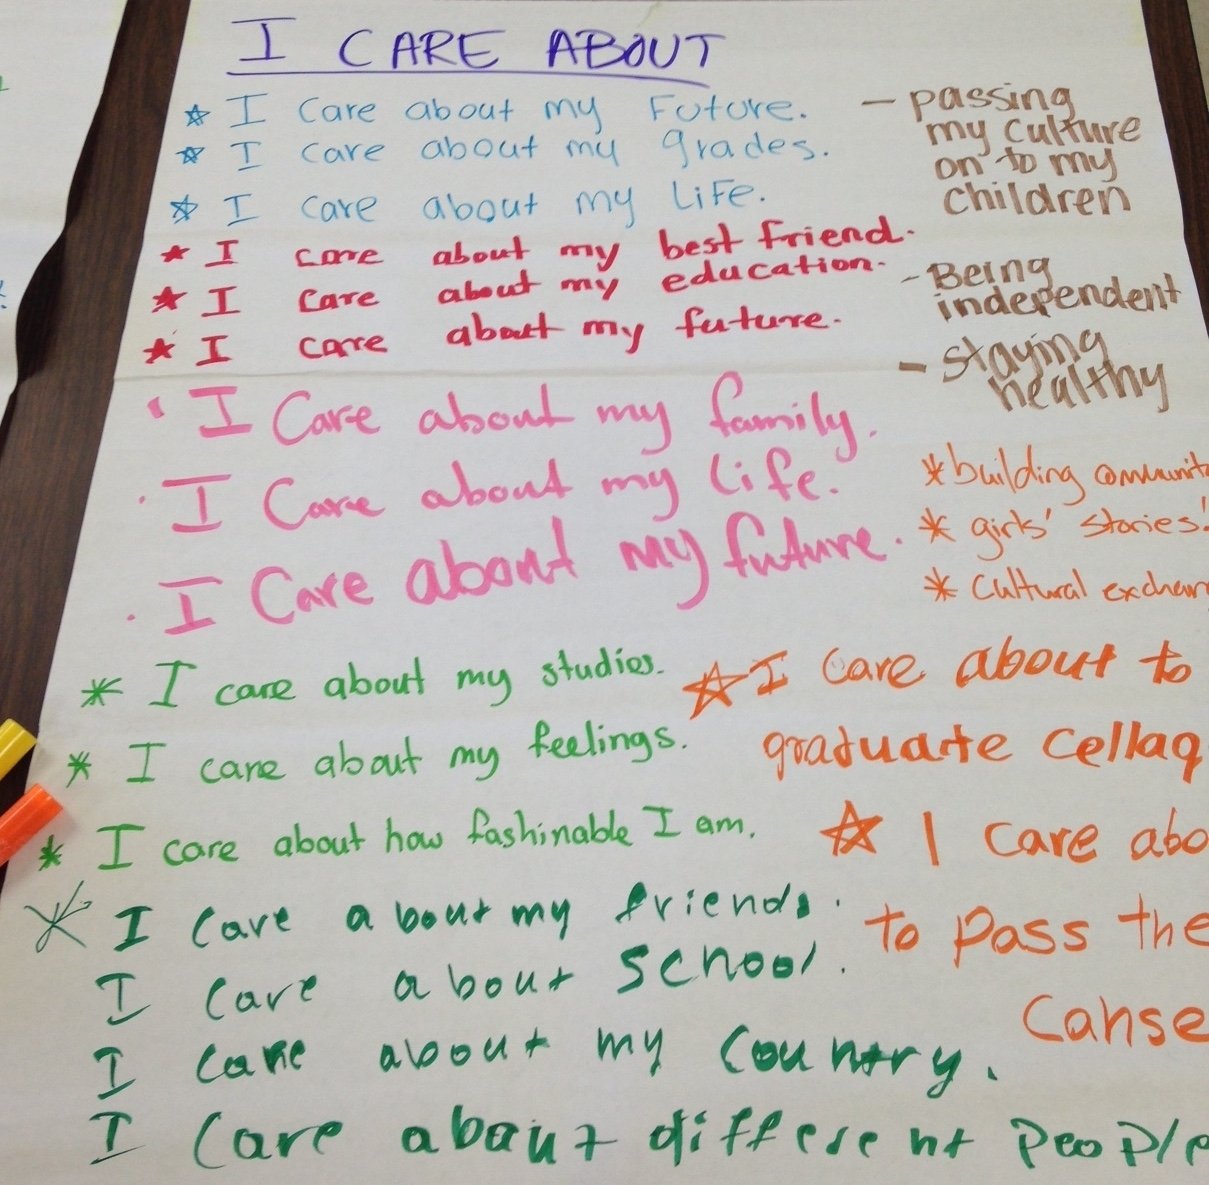 I CARE ABOUT
☆ I care about my Future.
☆ I care about my grades.
☆ I care about my life.
★ I care about my best friend.
★ I care about my education.
★ I care about my future.
- passing
my culture
on to my
children
- Being
independent
- staying
healthy
· I Care about my family.
· I Care about my life.
· I Care about my future.
* building communit
* girls' stories!
* Cultural exchan
* I care about my studies.
* I care about my feelings.
* I care about how fashinable I am.
☆ I care about to
graduate cellag
☆ I care abo
to pass the
Cahse
* I care about my friends.
I care about school.
I care about my country.
I care about different people